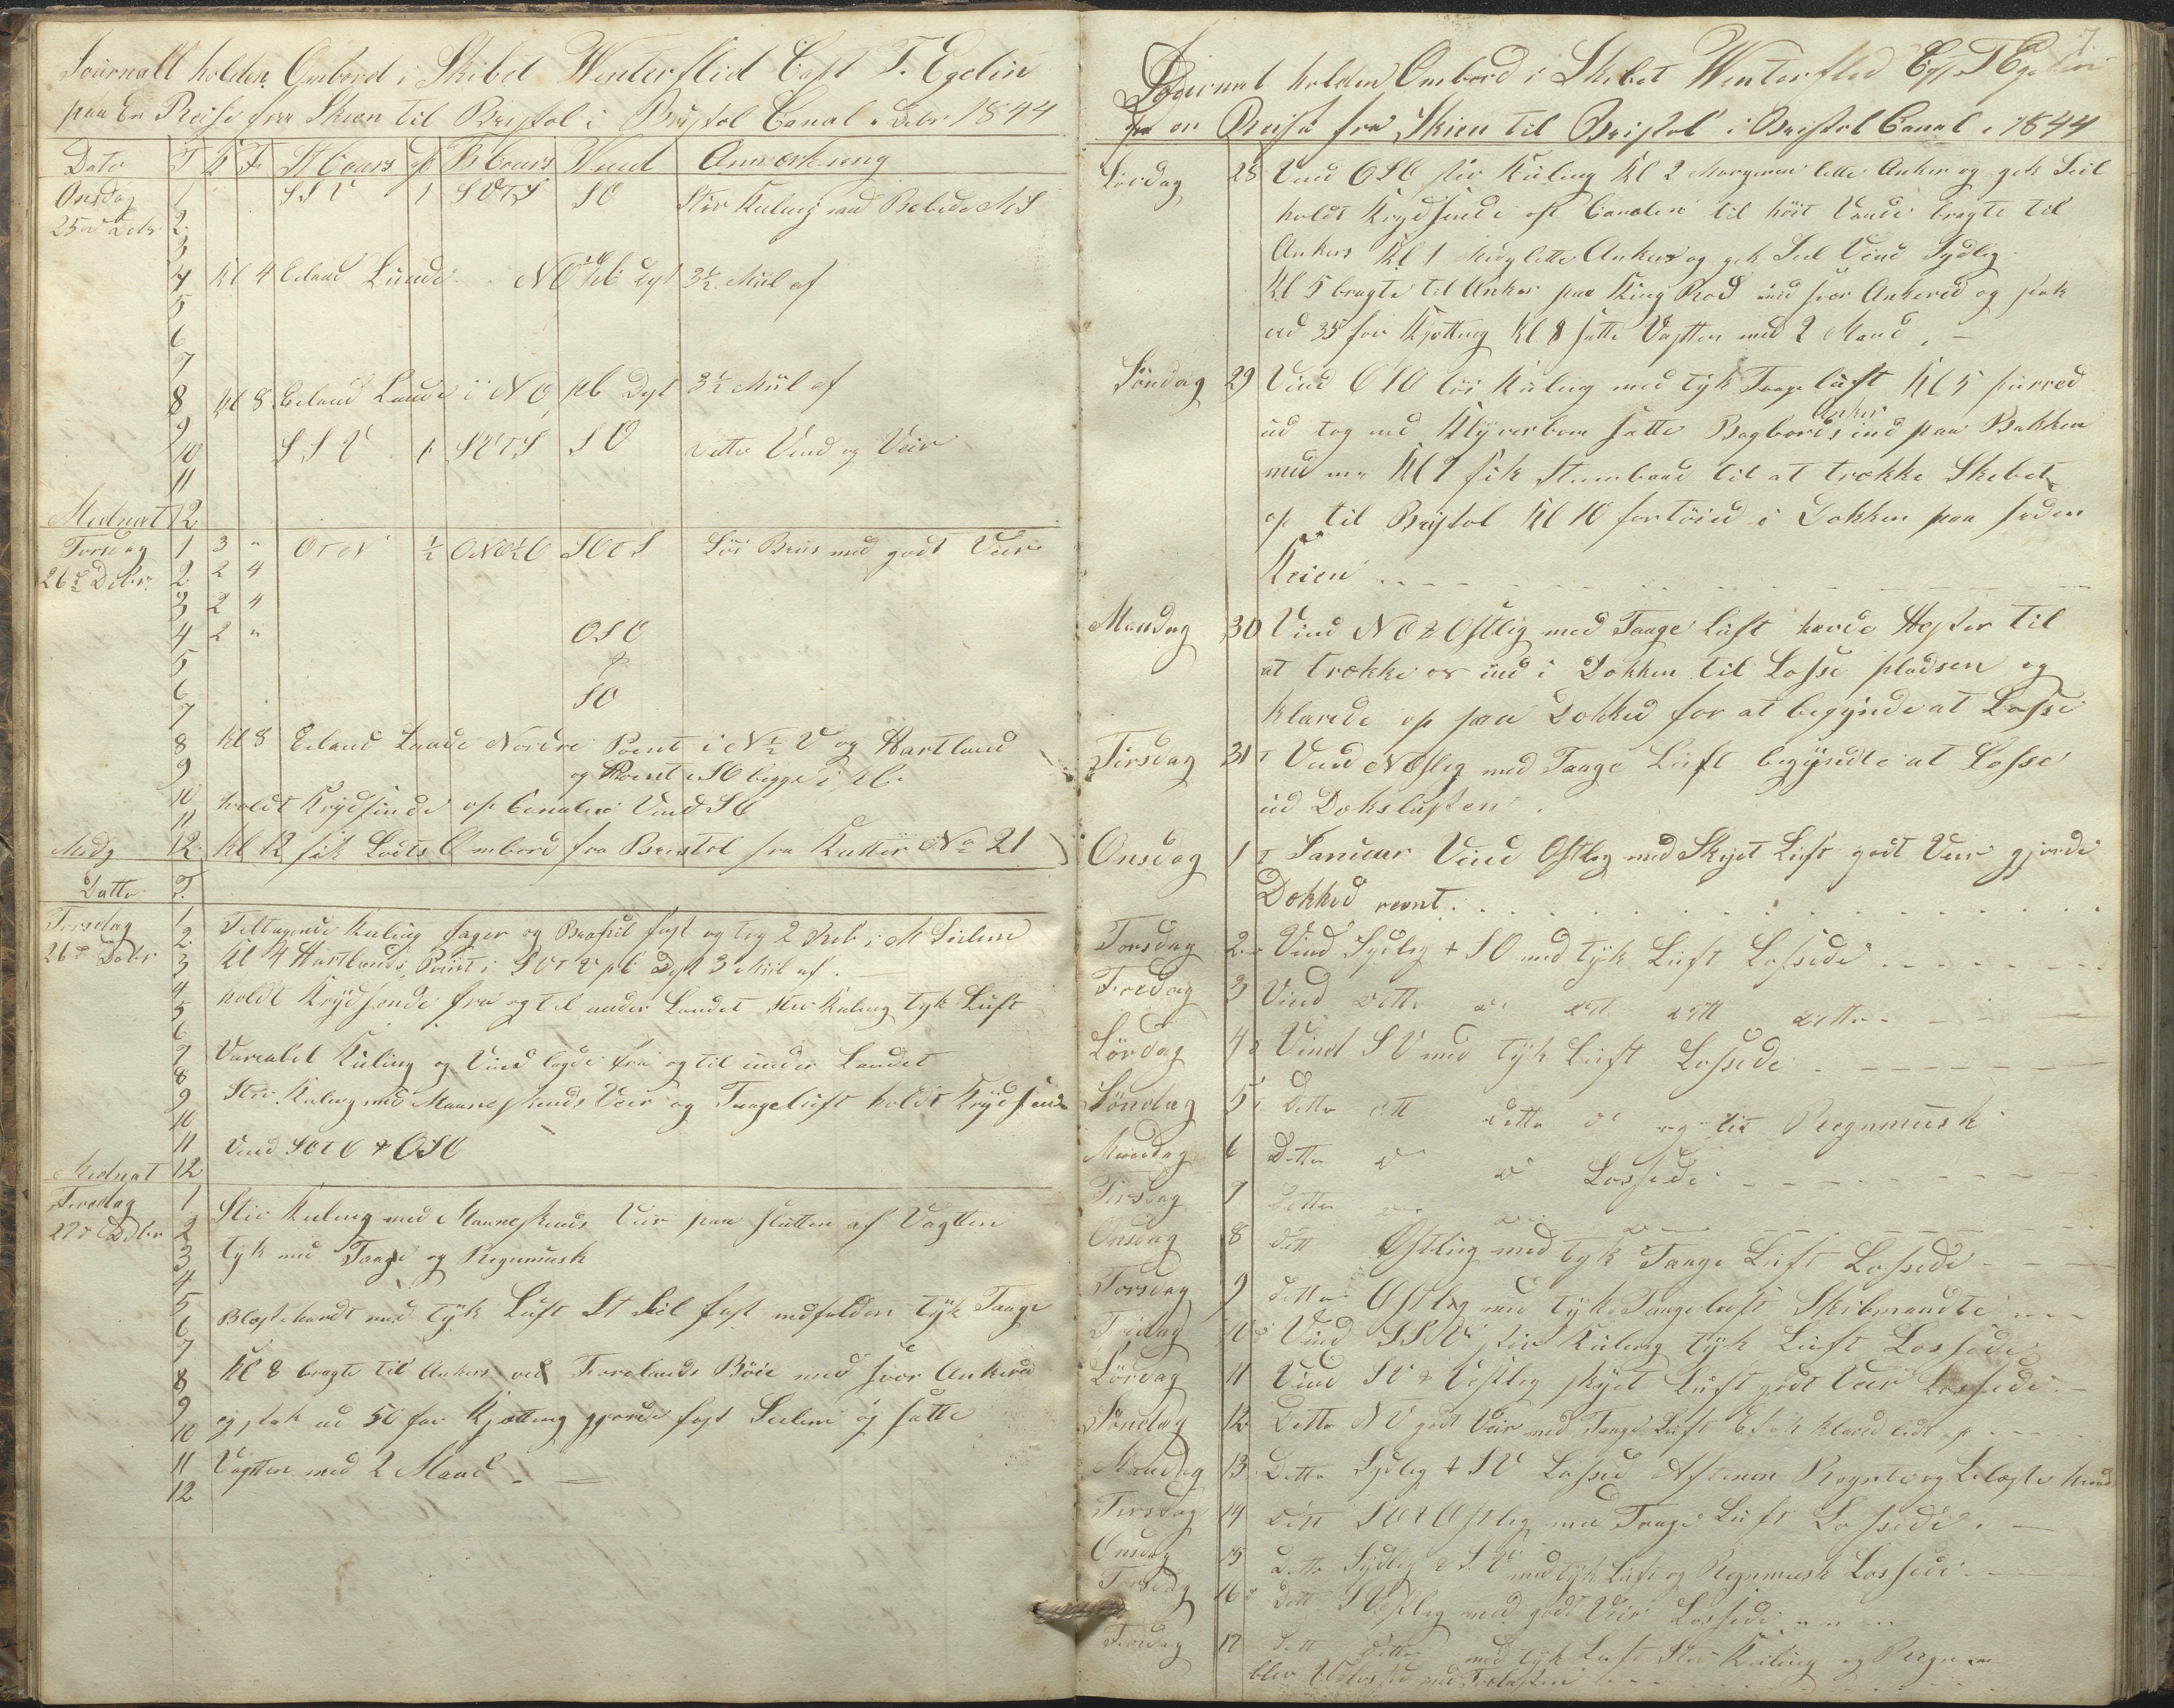 Journall holden Ombord i Skibet Winterflid Capt T. Egelin
paa En Reise fra Skien til Bristol i Bristol Canal i Debr 1844
Dato T K F St Cours B Cours Wind Anmærkning
Onsdag 1 SSV 1 SVTS SO Stiv Kuling med Rebede MS
25de Debr 2
3
4 Kl 4 Eiland Lunde NO pb Dyst 3½ Miil af
5
6
7
8 Kl 8 Eiland Lunde i NO pb Dyst 3½ Miil af
9
10 SSV 1 SVTS SO Ditto Vind og Veir
11
Midnat 12
Torsdag 1 3 " OTN ½ ONO½O SOTS Löi Briis med godt Veir
26de Debr 2 2 4
3 2 4
4 2 " OSO
5 &
6 SO
7
8 Kl 8 Eeland Lunde Nordre Point i N½V og Hartland
9 og Point i SO begge i pb.
10 holdt Krydsende op Canalen Vind SO
11
Midg 12 Kl 12 fik Lods Ombord fra Bristol fra Kutter No 21
Datto T.
Torsdag 1 Tiltagende Kuling og fast og tog 2 Reb i M Seilene
26de Debr 2
3 Kl 4 Hartlands Point i SVTV pb Dyst 3 Miil af
4 holdt Krydsende fra og til under Landet Stiv Kuling tyk Luft
5
6
7 Variabel Kuling og Vind fra og til under Landet
8
9 Stiv Kuling med Maaneskinds Veir og Taageluft holdt Krydsende
10
11 Vind SOTO & OSO
Midnat 12
Fredag 1 Stiv Kuling med Maaneskinds Veir paa slutten af Vagtten
27de Debr 2
3 tyk med Taage og Regnmusk
4
5 Blæste hardt med tyk Luft St Seil fast tyk Taage
6
7
8 Kl 8 bragte til Ankers ved Forelands Böie med svor Ankered
9 og stak ud 50 fav Kjetting gjorde fast Seilene og satte
10
11 Vagtten med 2 Mand
12
7
Journal holden Ombord i Skibet Winterflid Cap. T Egelin
paa en Reise fra Skien til Bristol i Bristol Canal i 1844
Lördag 28 Vind OSO stiv Kuling Kl 2 Morgenen lette Anker og gik Seil
holdt Krydsende op Canalen til höit Vande bragte til
Ankers Kl 1 Midg lette Ankers og gik Seil Vind Sydlig
Kl 5 bragte til Anker paa King Rod med svor Ankered og stak
ud 35 fav Kjetting Kl 8 satte Vagtten med 2 Mand
Söndag 29 Vind OSO löi Kuling med tyk Taage luft Kl 5 purred
Anker
ud tog ind Klyverbom satte Bagbords ind paa Bakken
Kl 9 fik Steembaad til at trække Skibet
op til Bristol Kl 10 fortöied i Dokken paa
Keien
Mandag 30 Vind NO & Ostlig med Taage Luft havde Hester til
at trække os ind i Dokken til Losse pladsen og
klarede op paa Dokked for at begynde at Losse
Tirsdag 31 Vind NOslig med Taage Luft begyndte at Losse
ud Dekslasten
Onsdag 1 Januar Vind Ostlig med Skyet Luft godt Veir gjorde
Dokked reent
Torsdag 2 Vind Sydlig & SO med tyk Luft Lossede
Fredag 3 Vind ditto do ditt ditt ditto
Lördag 4 Vind SV med tyk Luft Lossede
Söndag 5 Ditto ditt ditto do og lit Regnmusk
Mandag 6 Ditto do do Lossede
Tirsdag 7 Ditto do do do
Onsdag 8 ditt Ostlig med tyk Taage Luft Lossede
Torsdag 9 ditto Ostlig med tyk Taageluft Skibmandte
Fridag 10 Vind SSV stiv Kuling tyk Luft Lossede
Lördag 11 Vind SV & Vestlig skyet Luft godt Veir Lossede
Söndag 12 Ditto NV godt Veir med Taage Luft klared lidt op
Mandag 13 Ditto Sydlig & SV Lossed Aftenen Regnte og blæste hard
Tirsdag 14 ditt SO & Ostlig med Taage Luft Lossede
Onsdag 15 Ditto Sydlig & SV med tyk Luft og Regnmusk Lossede
Torsdag 16 ditt SVestlig med godt Veir Lossede
Fredag 17 ditt ditto med tyk Luft Stiv Kuling og Regn
blev Udlosset med